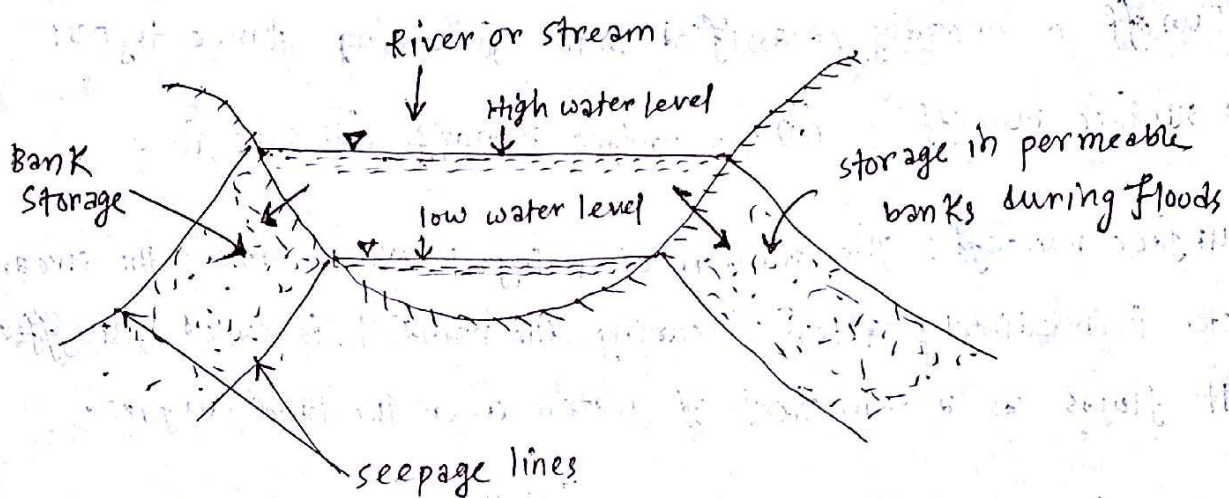 River or stream
High water level
Bank
storage
low water level
storage in permeable
banks during floods
seepage lines